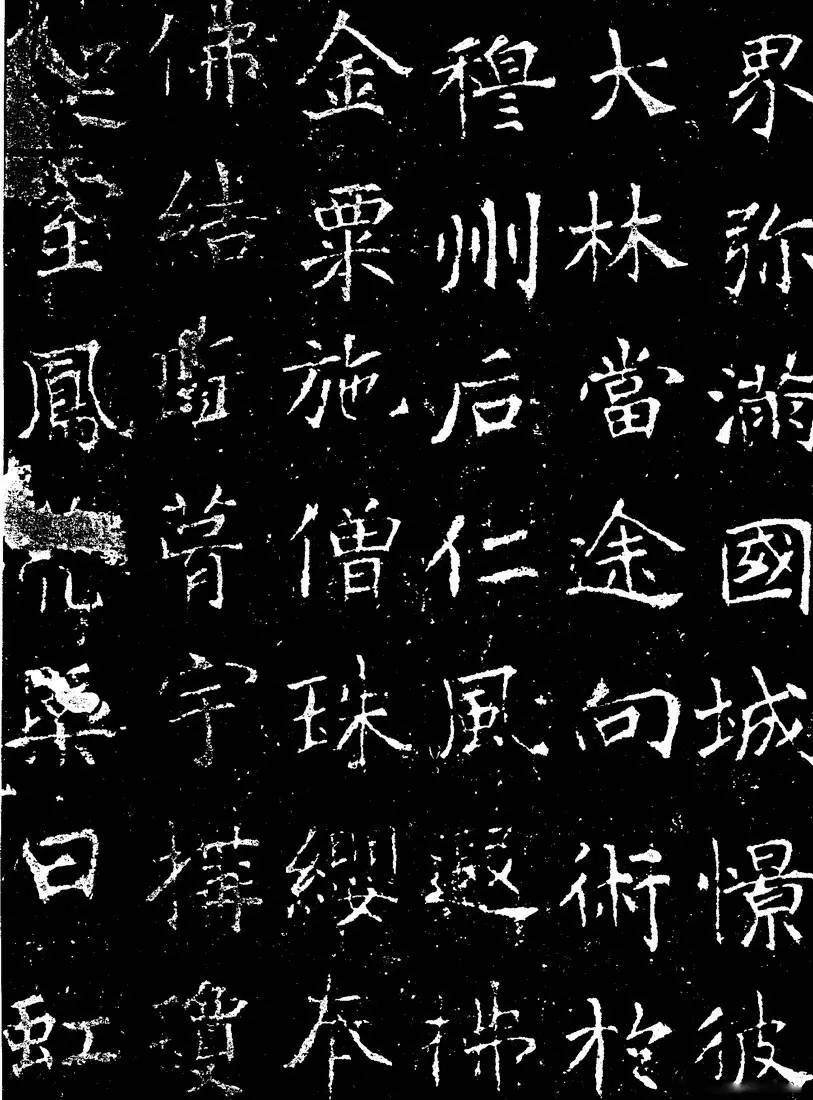 界弥滿國城憬彼
大林當途向術於
穆州后仁風遐拂
金粟施僧珠纓奉
佛結葺宇構瓊
鳳日虹